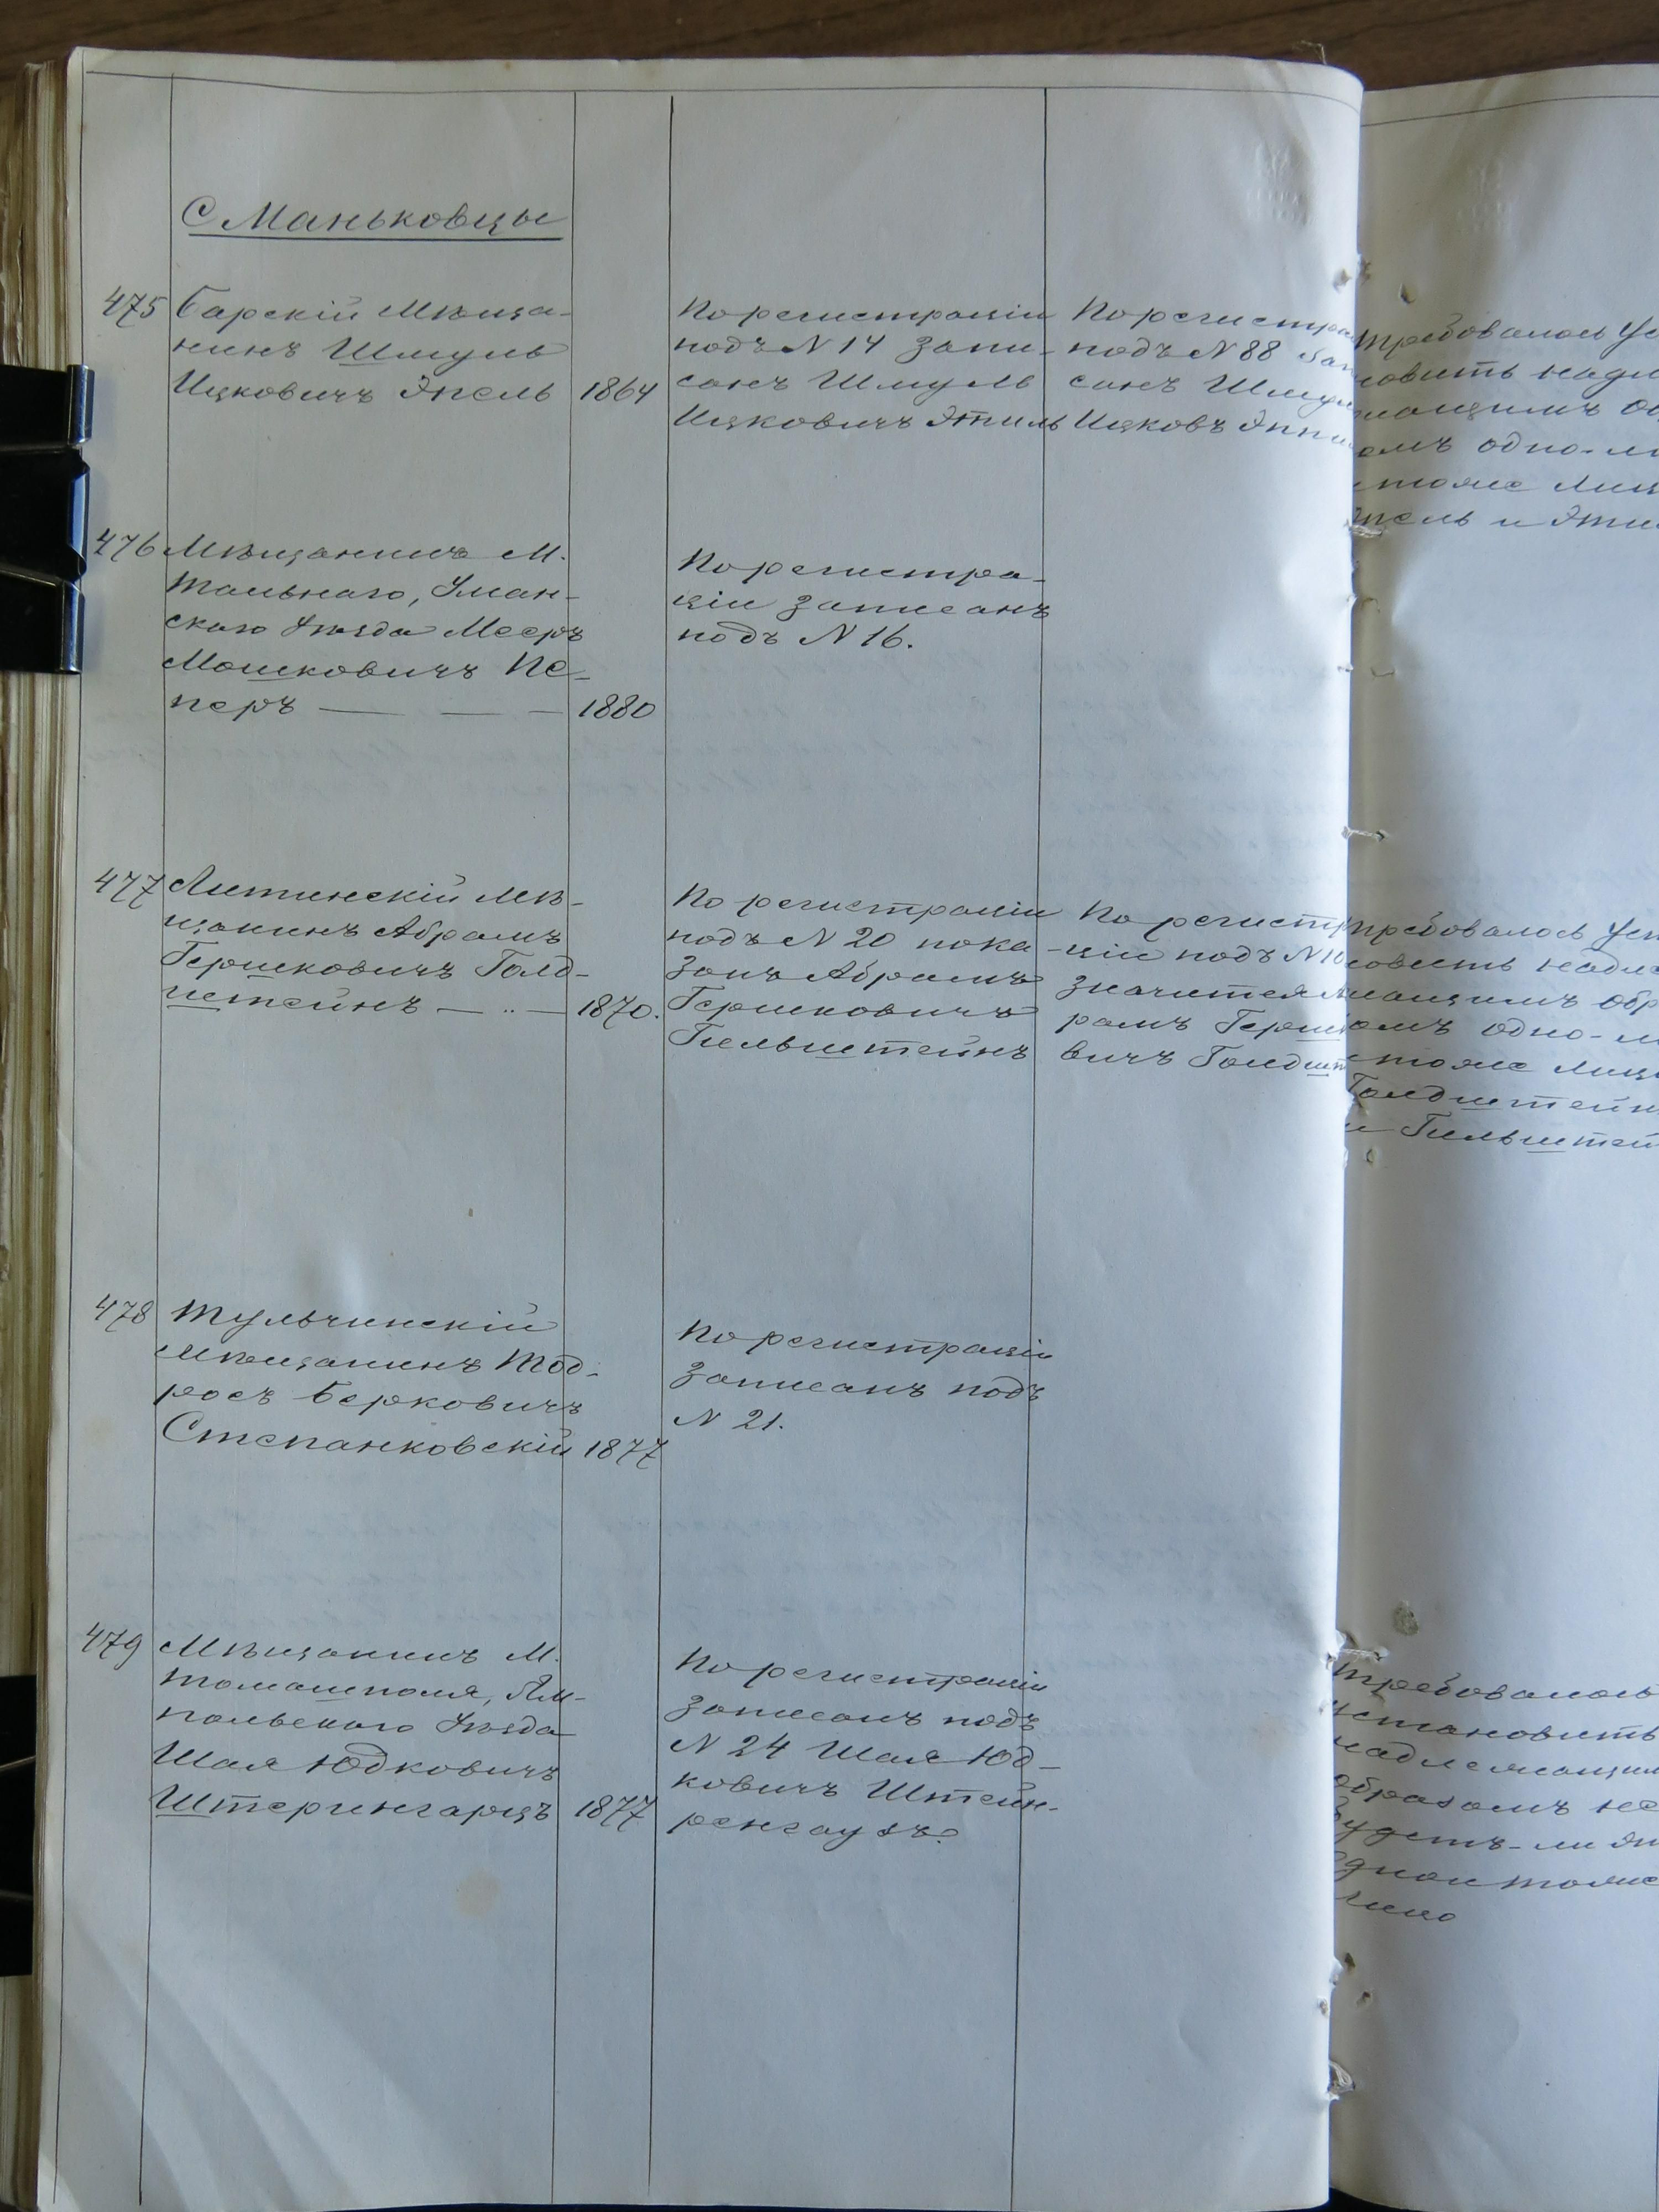 С Маньковцы
475 Барскій Мѣща-
нинъ Шмуль
Ицковичъ Эпель 1864
По регистраціи
подъ N 14 запи-
санъ Шмуль
Ицковичъ Этиль
По регистра
подъ N 88 зап
санъ Шмул
Ицковъ Эпп
Требовалось Ус
новить надл
жащимъ О
омъ одно-л
тоже Лиц
Эпель и Эти
476 Мѣщанинъ М.
Тальнаго, Уман-
скаго Уѣзда Мееръ
Мошковичъ Пе-
перъ 1880
По регистра-
ціи записанъ
подъ N 16.
477 Литинскій Мѣ-
щанинъ Абрамъ
Гершковичъ Голд-
штейнъ 1870.
По регистраціи
подъ N 20 пока-
занъ Абрамъ
Гершковичъ
Гильштейнъ
По регистр
ціи подъ N 10
значится А
рамъ Герш
вичъ Голдшт
Требовалось Уст
новить надле
жащимъ обр
омъ одно-л
тоже Лиц
Голдштейн
и Гильштей
478 Тульчинскій
Мѣщанинъ Тод-
росъ Берковичъ
Степанковскій 1877
По регистраціи
записанъ подъ
N 21.
479 Мѣщанинъ М.
Томашполя, Ям-
польскаго Уѣзда
Шая Юдковичъ
Штернгарцъ 1877
По регистраціи
записанъ подъ
N 24 Шая Юд-
ковичъ Штейн-
ренгаузъ.
Требовалось
Установить
надлежащим
образомъ не
будетъ-ли Эт
одно и тоже
лицо